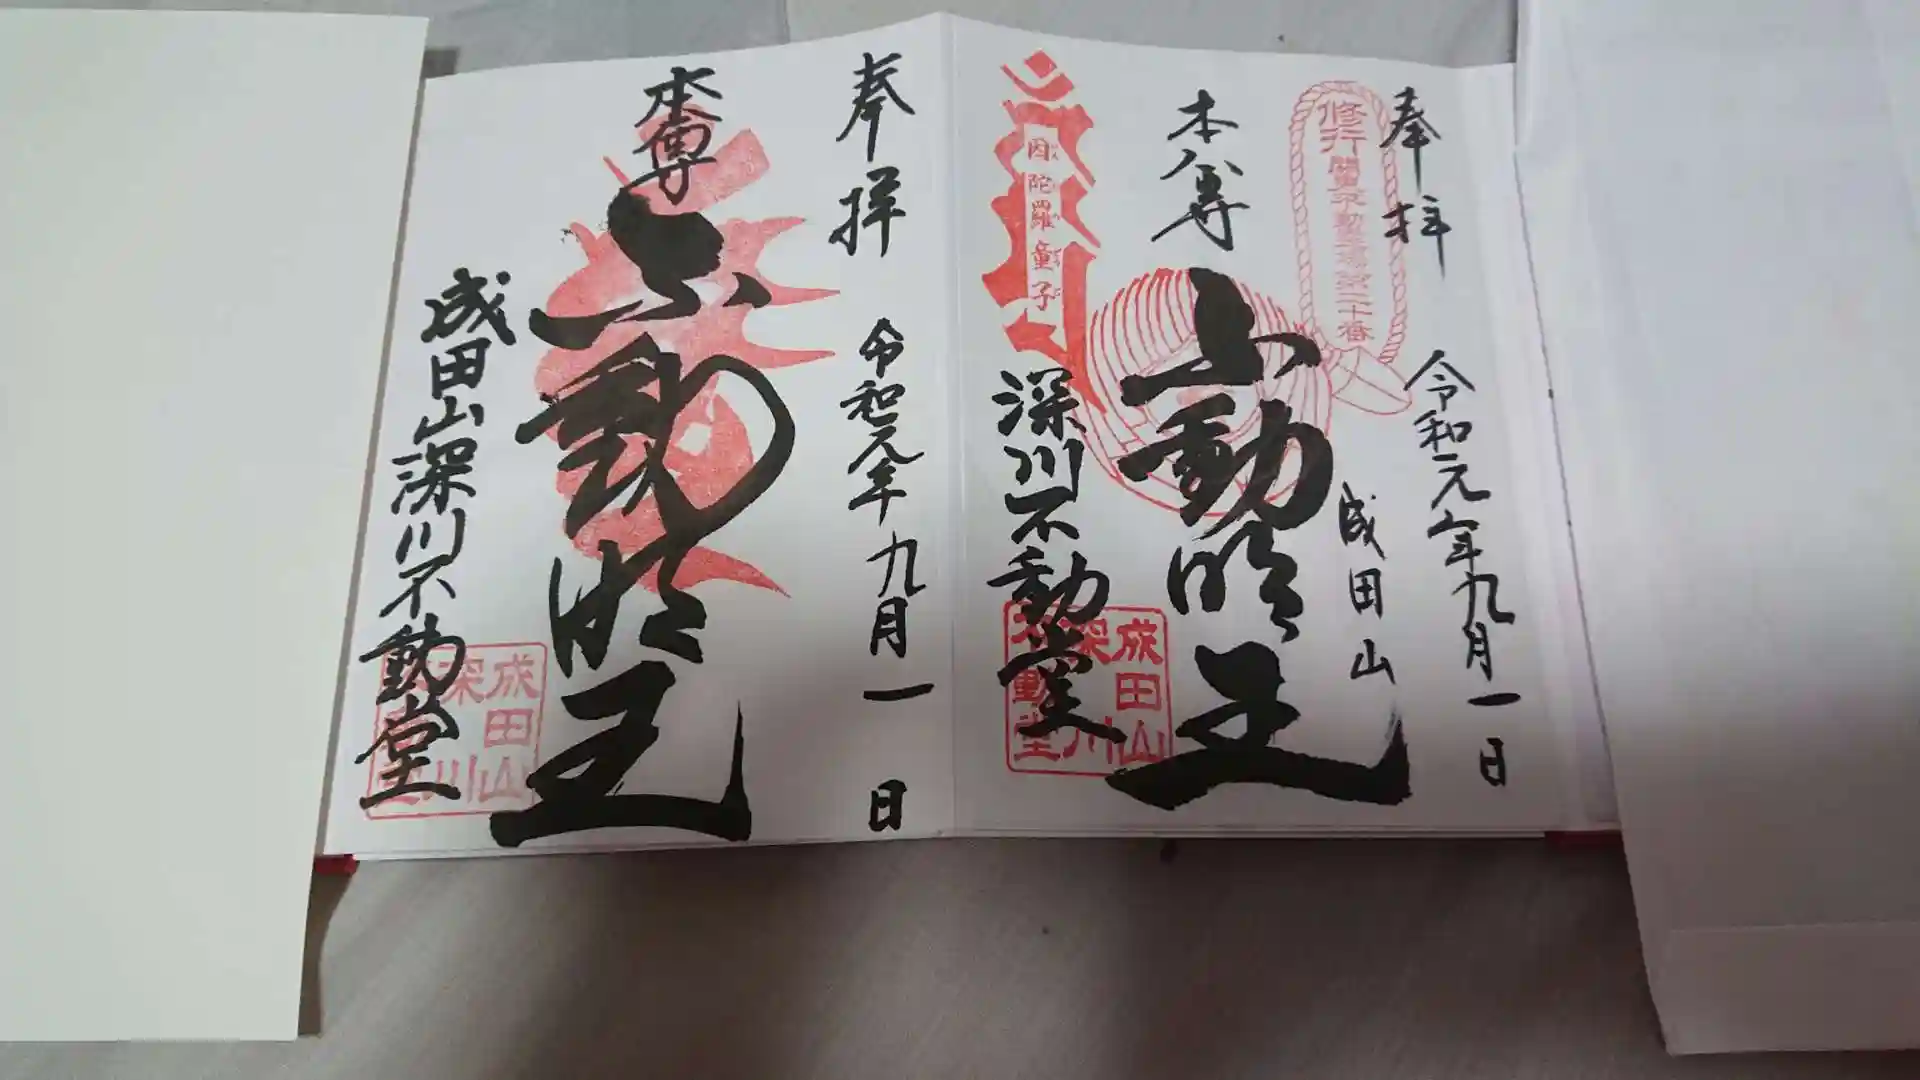 奉拝
令和元年九月一日
修行
関東
不動霊場第二十番
成田山
本尊
不動明王
因陀羅童子
深川不動堂
成田山
深川
不動堂
奉拝
令和元年九月一日
本尊
不動明王
成田山深川不動堂
成田山
深川